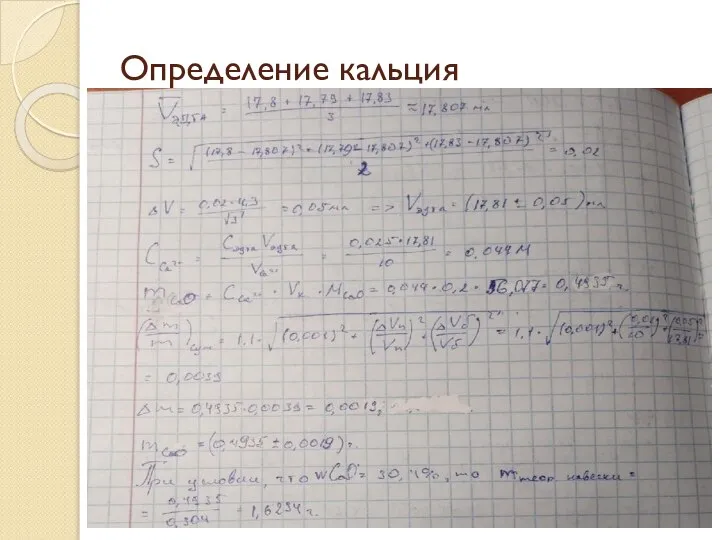 Определение кальция
V̅эдта = (17,8 + 17,79 + 17,83)/3 ≈ 17,807 мл
S = √((17,8 – 17,807)² + (17,79 – 17,807)² + (17,83 – 17,807)²)/2 = 0,02
ΔV = 0,02·4,3/√3 = 0,05 мл => Vэдта = (17,81 ± 0,05) мл
C Ca²⁺ = Cэдта Vэдта / V Ca²⁺ = 0,025·17,81/10 = 0,044 M
m CaO = C Ca²⁺ · Vк · M CaO = 0,044 · 0,2 · 56,077 = 0,4935 г.
(Δm/m) сум = 1,1 · √((0,001)² + (ΔVп/Vп)² + (ΔVб/Vб)²) = 1,1 · √((0,001)² +
= 0,0039
Δm = 0,4935·0,0039 = 0,0019
m CaO = (0,4935 ± 0,0019) г.
При условии, что w CaO = 30,4%, то m теор. навески =
= 0,4935/0,304 = 1,6234 г.